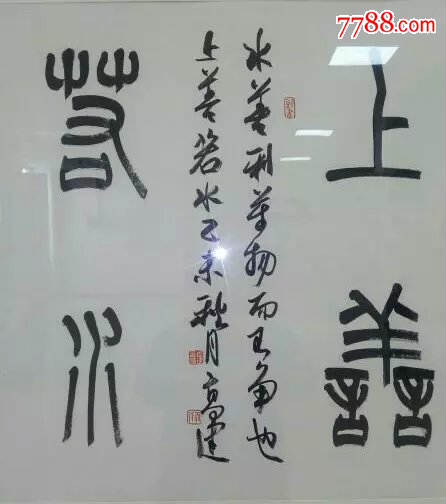 7788.com
上善
水善利萬物而不争也
上善若水乙未秋月高
若水